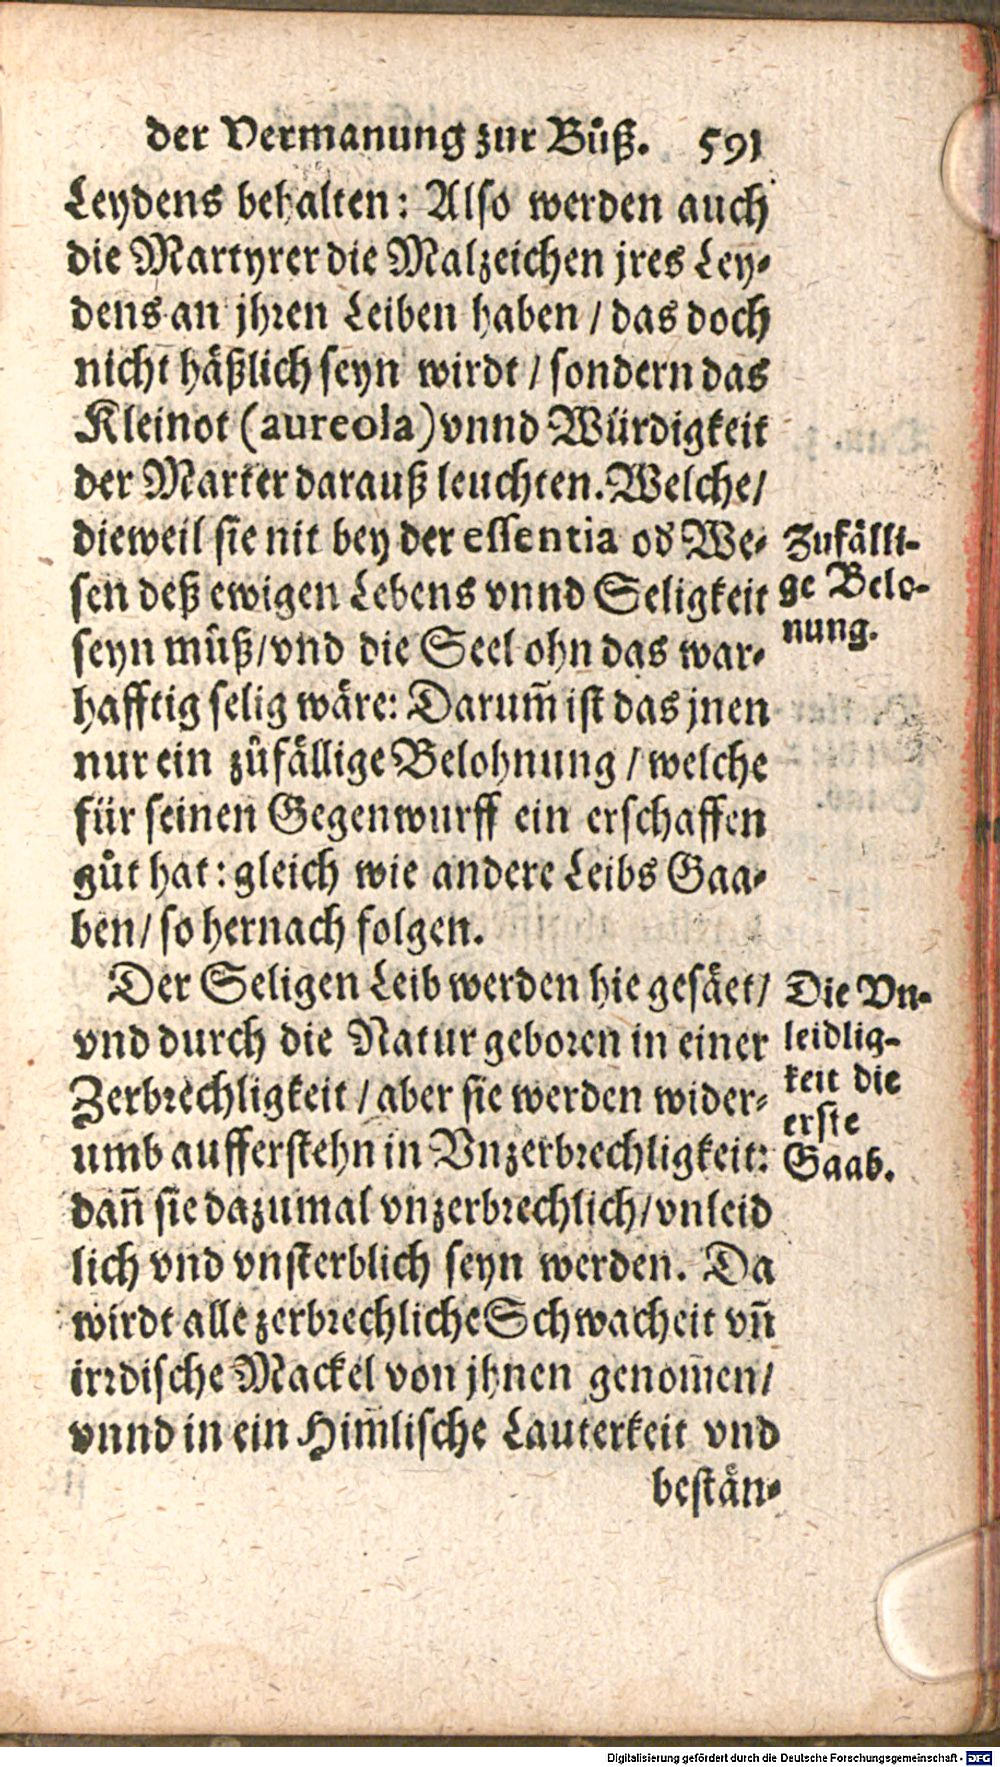 der Vermanung zur Bůß. 591
Leydens behalten: Also werden auch
die Martyrer die Malzeichen jres Ley-
dens an jhren Leiben haben / das doch
nicht häßlich seyn wirdt / sondern das
Kleinot (aureola) vnnd Würdigkeit
der Marter darauß leuchten. Welche/
dieweil sie nit bey der essentia od We-
sen deß ewigen Lebens vnnd Seligkeit
seyn můß/vnd die Seel ohn das war-
hafftig selig wäre: Darum̃ ist das jnen
nur ein zůfällige Belohnung / welche
für seinen Gegenwurff ein erschaffen
gůt hat: gleich wie andere Leibs Gaa-
ben/ so hernach folgen.
Zufälli-
ge Belo-
nung.
Der Seligen Leib werden hie gesäet/
vnd durch die Natur geboren in einer
Zerbrechligkeit / aber sie werden wider-
umb aufferstehn in Vnzerbrechligkeit:
dañ sie dazumal vnzerbrechlich/vnleid
lich vnd vnsterblich seyn werden. Da
wirdt alle zerbrechliche Schwacheit vñ
irrdische Mackel von jhnen genom̃en/
vnnd in ein Him̃lische Lauterkeit vnd
bestän-
Die Vn-
leidlig-
keit die
erste
Gaab.
Digitalisierung gefördert durch die Deutsche Forschungsgemeinschaft - DFG